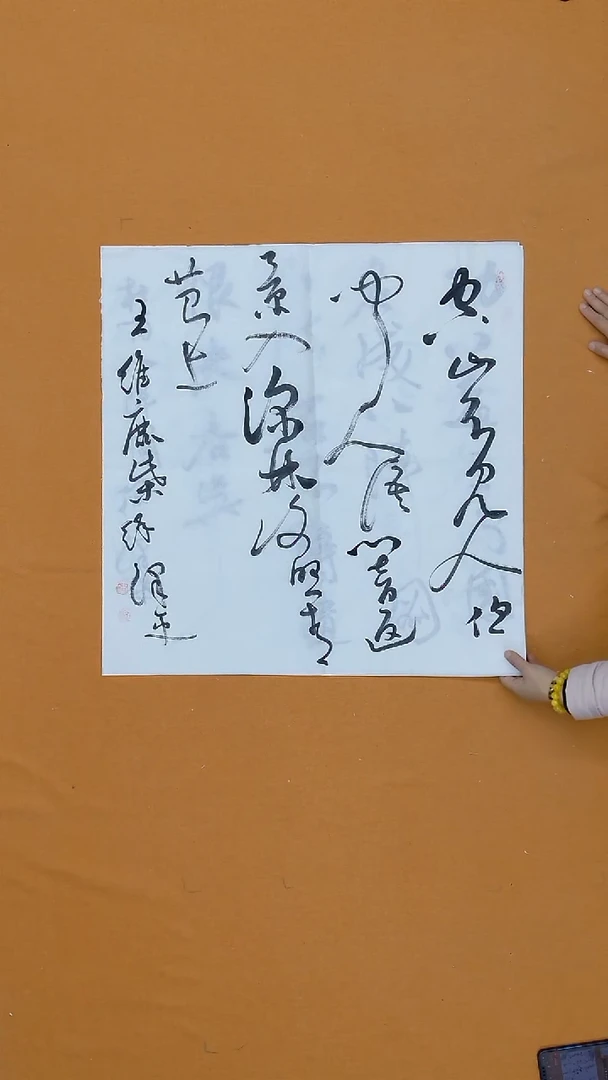 空山不见人但
闻人语响返
景入深林复照青
苔上
王维鹿柴